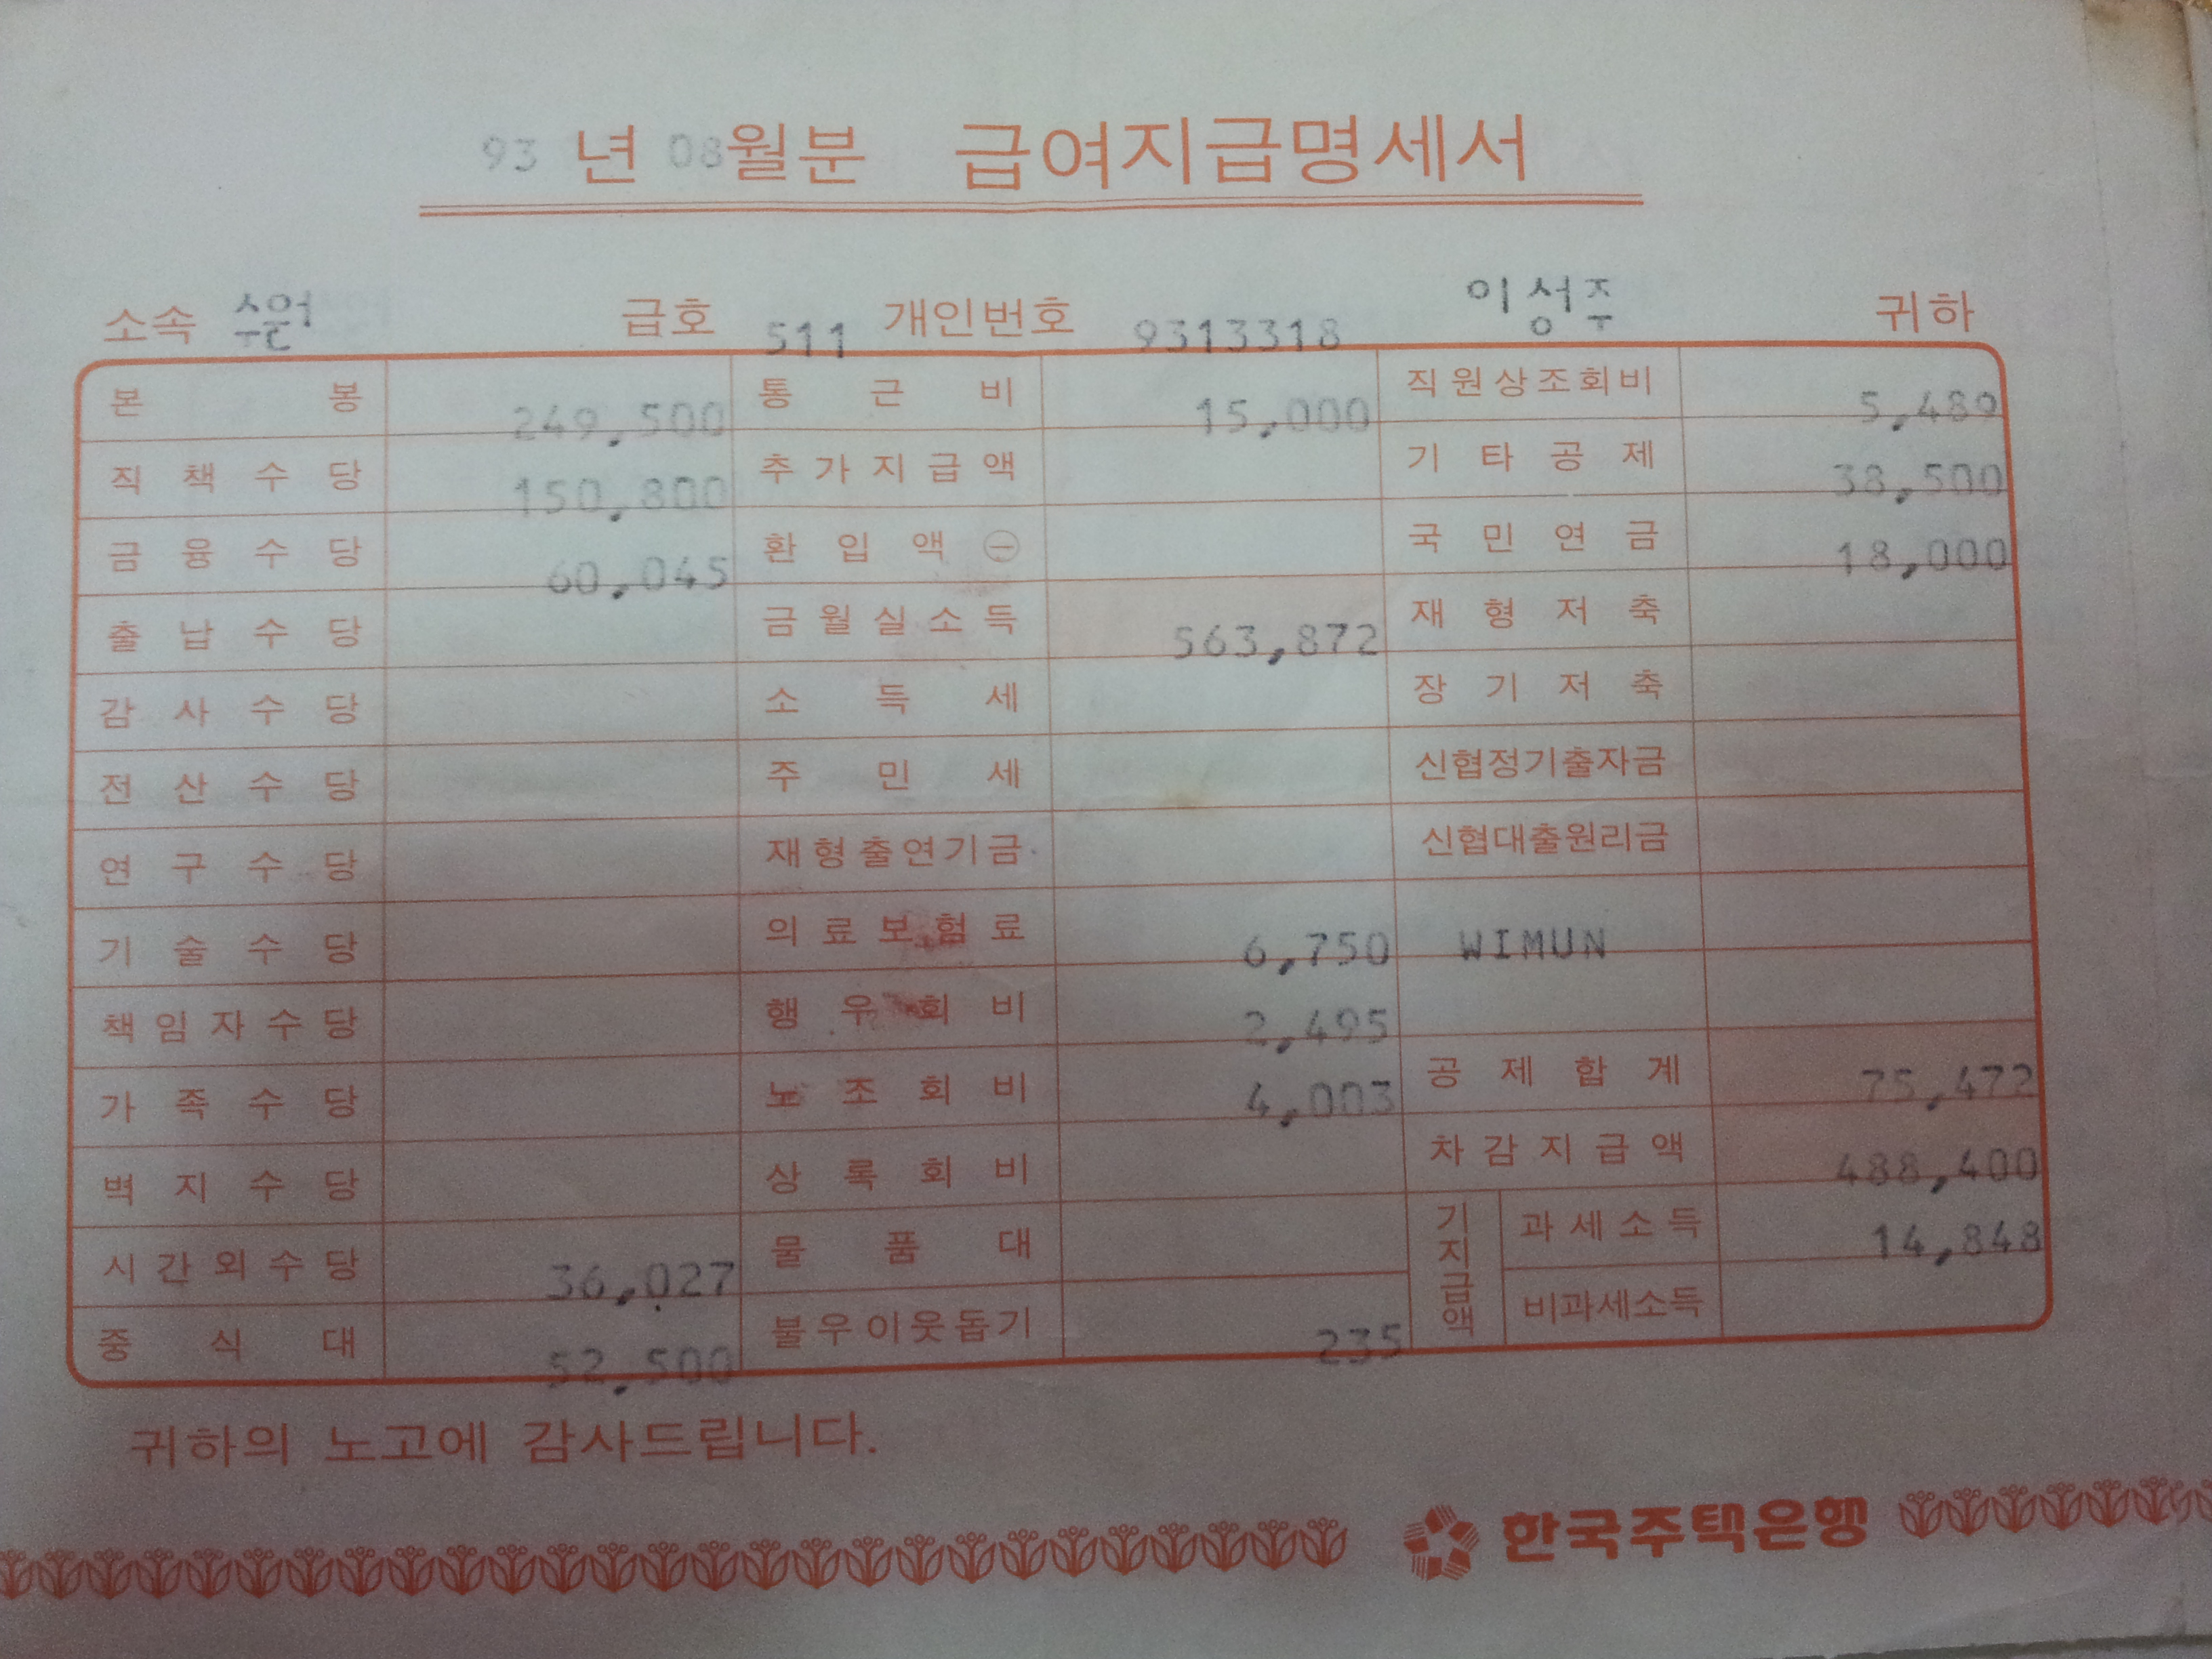 93 년 08월분 급여지급명세서
소속 급호 511 개인번호 9313318 이성주 귀하
본 봉 249,500 통 근 비 15,000 직원상조회비 5,489
직 책 수 당 150,800 추가지급액 기 타 공 제 38,500
금 융 수 당 60,045 환 입 액 ㊀ 국 민 연 금 18,000
출 납 수 당 금월실소득 563,872 재 형 저 축
감 사 수 당 소 득 세 장 기 저 축
전 산 수 당 주 민 세 신협정기출자금
연 구 수 당 재형출연기금 신협대출원리금
기 술 수 당 의료보험료 6,750 WIMUN
책임자수당 행 우 회 비 2,495
가 족 수 당 노 조 회 비 4,003 공 제 합 계 75,472
벽 지 수 당 상 록 회 비 차감지급액 488,400
시간외수당 36,027 물 품 대 기지급액 과세소득 14,848
중 식 대 52,500 불우이웃돕기 235 비과세소득
귀하의 노고에 감사드립니다.
한국주택은행